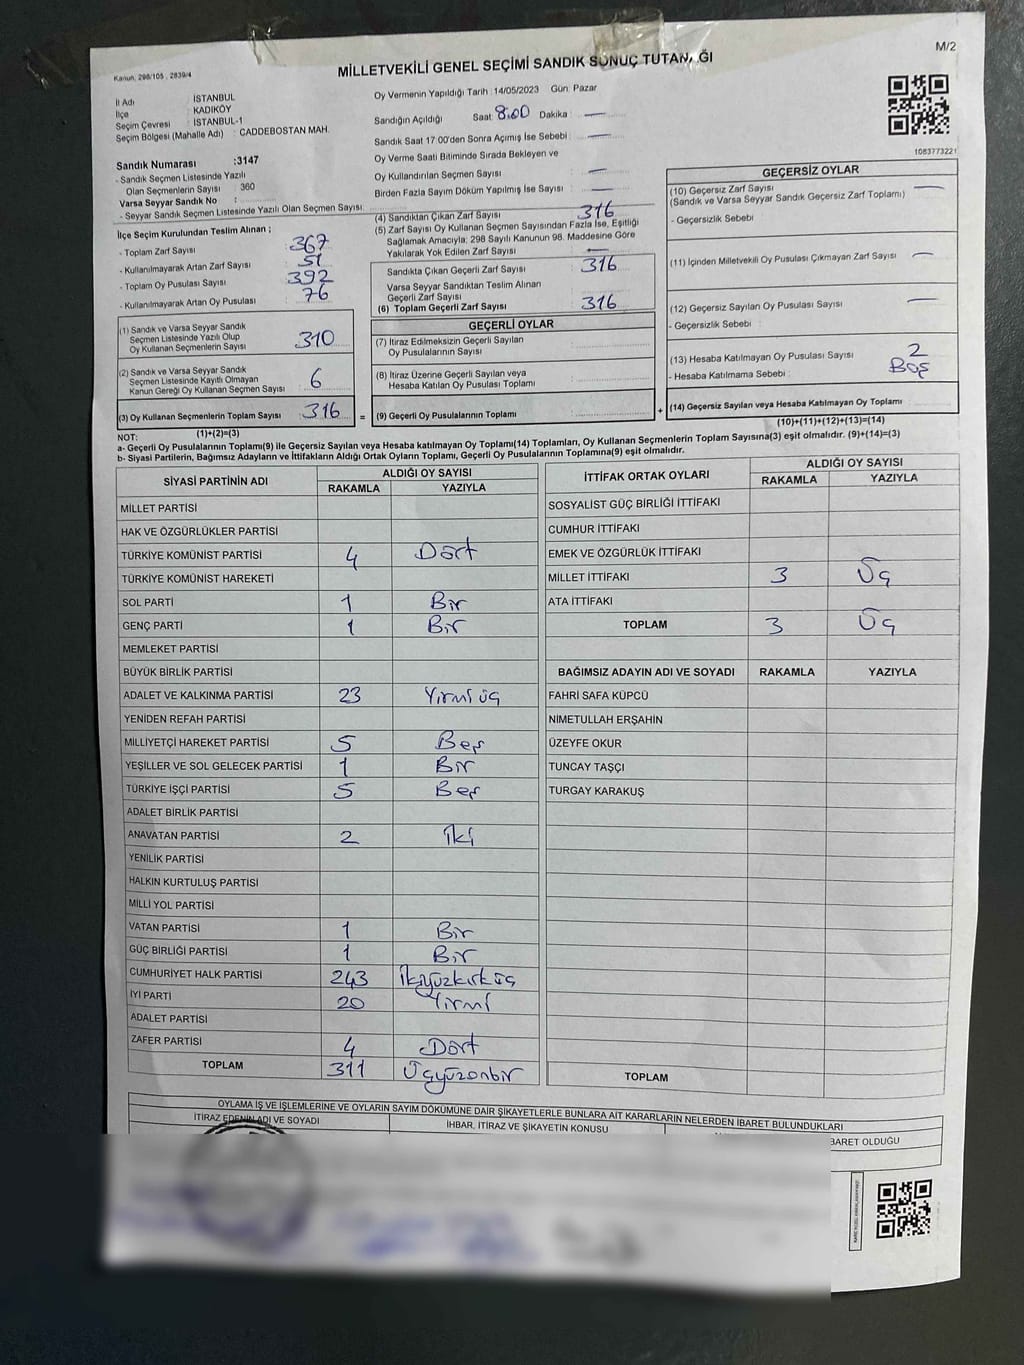 M/2
Kanun, 298/105 , 2839/4
MİLLETVEKİLİ GENEL SEÇİMİ SANDIK SONUÇ TUTANAĞI
İl Adı : İSTANBUL
İlçe : KADIKÖY
Seçim Çevresi : İSTANBUL-1
Seçim Bölgesi (Mahalle Adı) : CADDEBOSTAN MAH.
Sandık Numarası :3147
- Sandık Seçmen Listesinde Yazılı
Olan Seçmenlerin Sayısı : 360
Varsa Seyyar Sandık No :
- Seyyar Sandık Seçmen Listesinde Yazılı Olan Seçmen Sayısı
İlçe Seçim Kurulundan Teslim Alınan ;
- Toplam Zarf Sayısı : 367
- Kullanılmayarak Artan Zarf Sayısı : 51
- Toplam Oy Pusulası Sayısı : 392
- Kullanılmayarak Artan Oy Pusulası : 76
(1) Sandık ve Varsa Seyyar Sandık
Seçmen Listesinde Yazılı Olup
Oy Kullanan Seçmenlerin Sayısı : 310
(2) Sandık ve Varsa Seyyar Sandık
Seçmen Listesinde Kayıtlı Olmayan
Kanun Gereği Oy Kullanan Seçmen Sayısı : 6
(3) Oy Kullanan Seçmenlerin Toplam Sayısı : 316
(1)+(2)=(3)
Oy Vermenin Yapıldığı Tarih :14/05/2023 Gün: Pazar
Sandığın Açıldığı Saat 8:00 Dakika : —
Sandık Saat 17:00'den Sonra Açımış İse Sebebi : —
Oy Verme Saati Bitiminde Sırada Bekleyen ve
Oy Kullandırılan Seçmen Sayısı : —
Birden Fazla Sayım Döküm Yapılmış İse Sayısı : —
(4) Sandıktan Çıkan Zarf Sayısı : 316
(5) Zarf Sayısı Oy Kullanan Seçmen Sayısından Fazla İse, Eşitliği
Sağlamak Amacıyla; 298 Sayılı Kanunun 98. Maddesine Göre
Yakılarak Yok Edilen Zarf Sayısı : —
Sandıkta Çıkan Geçerli Zarf Sayısı : 316
Varsa Seyyar Sandıktan Teslim Alınan
Geçerli Zarf Sayısı :
(6) Toplam Geçerli Zarf Sayısı : 316
GEÇERLİ OYLAR
(7) İtiraz Edilmeksizin Geçerli Sayılan
Oy Pusulalarının Sayısı :
(8) İtiraz Üzerine Geçerli Sayılan veya
Hesaba Katılan Oy Pusulası Toplamı :
= (9) Geçerli Oy Pusulalarının Toplamı : +
1083773221
GEÇERSİZ OYLAR
(10) Geçersiz Zarf Sayısı : —
(Sandık ve Varsa Seyyar Sandık Geçersiz Zarf Toplamı)
- Geçersizlik Sebebi :
(11) İçinden Milletvekili Oy Pusulası Çıkmayan Zarf Sayısı : —
(12) Geçersiz Sayılan Oy Pusulası Sayısı : —
- Geçersizlik Sebebi :
(13) Hesaba Katılmayan Oy Pusulası Sayısı : 2
- Hesaba Katılmama Sebebi : Boş
(14) Geçersiz Sayılan veya Hesaba Katılmayan Oy Toplamı :
(10)+(11)+(12)+(13)=(14)
NOT:
a- Geçerli Oy Pusulalarının Toplamı(9) ile Geçersiz Sayılan veya Hesaba katılmayan Oy Toplamı(14) Toplamları, Oy Kullanan Seçmenlerin Toplam Sayısına(3) eşit olmalıdır. (9)+(14)=(3)
b- Siyasi Partilerin, Bağımsız Adayların ve İttifakların Aldığı Ortak Oyların Toplamı, Geçerli Oy Pusulalarının Toplamına(9) eşit olmalıdır.
SİYASİ PARTİNİN ADI ALDIĞI OY SAYISI
RAKAMLA YAZIYLA
MİLLET PARTİSİ
HAK VE ÖZGÜRLÜKLER PARTİSİ
TÜRKİYE KOMÜNİST PARTİSİ 4 Dört
TÜRKİYE KOMÜNİST HAREKETİ
SOL PARTİ 1 Bir
GENÇ PARTİ 1 Bir
MEMLEKET PARTİSİ
BÜYÜK BİRLİK PARTİSİ
ADALET VE KALKINMA PARTİSİ 23 Yirmi üç
YENİDEN REFAH PARTİSİ
MİLLİYETÇİ HAREKET PARTİSİ 5 Beş
YEŞİLLER VE SOL GELECEK PARTİSİ 1 Bir
TÜRKİYE İŞÇİ PARTİSİ 5 Beş
ADALET BİRLİK PARTİSİ
ANAVATAN PARTİSİ 2 İki
YENİLİK PARTİSİ
HALKIN KURTULUŞ PARTİSİ
MİLLİ YOL PARTİSİ
VATAN PARTİSİ 1 Bir
GÜÇ BİRLİĞİ PARTİSİ 1 Bir
CUMHURİYET HALK PARTİSİ 243 İkiyüzkırküç
İYİ PARTİ 20 Yirmi
ADALET PARTİSİ
ZAFER PARTİSİ 4 Dört
TOPLAM 311 Üçyüzonbir
İTTİFAK ORTAK OYLARI ALDIĞI OY SAYISI
RAKAMLA YAZIYLA
SOSYALİST GÜÇ BİRLİĞİ İTTİFAKI
CUMHUR İTTİFAKI
EMEK VE ÖZGÜRLÜK İTTİFAKI
MİLLET İTTİFAKI 3 Üç
ATA İTTİFAKI
TOPLAM 3 Üç
BAĞIMSIZ ADAYIN ADI VE SOYADI RAKAMLA YAZIYLA
FAHRİ SAFA KÜPCÜ
NİMETULLAH ERŞAHİN
ÜZEYFE OKUR
TUNCAY TAŞÇI
TURGAY KARAKUŞ
TOPLAM
OYLAMA İŞ VE İŞLEMLERİNE VE OYLARIN SAYIM DÖKÜMÜNE DAİR ŞİKAYETLERLE BUNLARA AİT KARARLARIN NELERDEN İBARET BULUNDUKLARI
İTİRAZ EDENİN ADI VE SOYADI İHBAR, İTİRAZ VE ŞİKAYETİN KONUSU BARET OLDUĞU